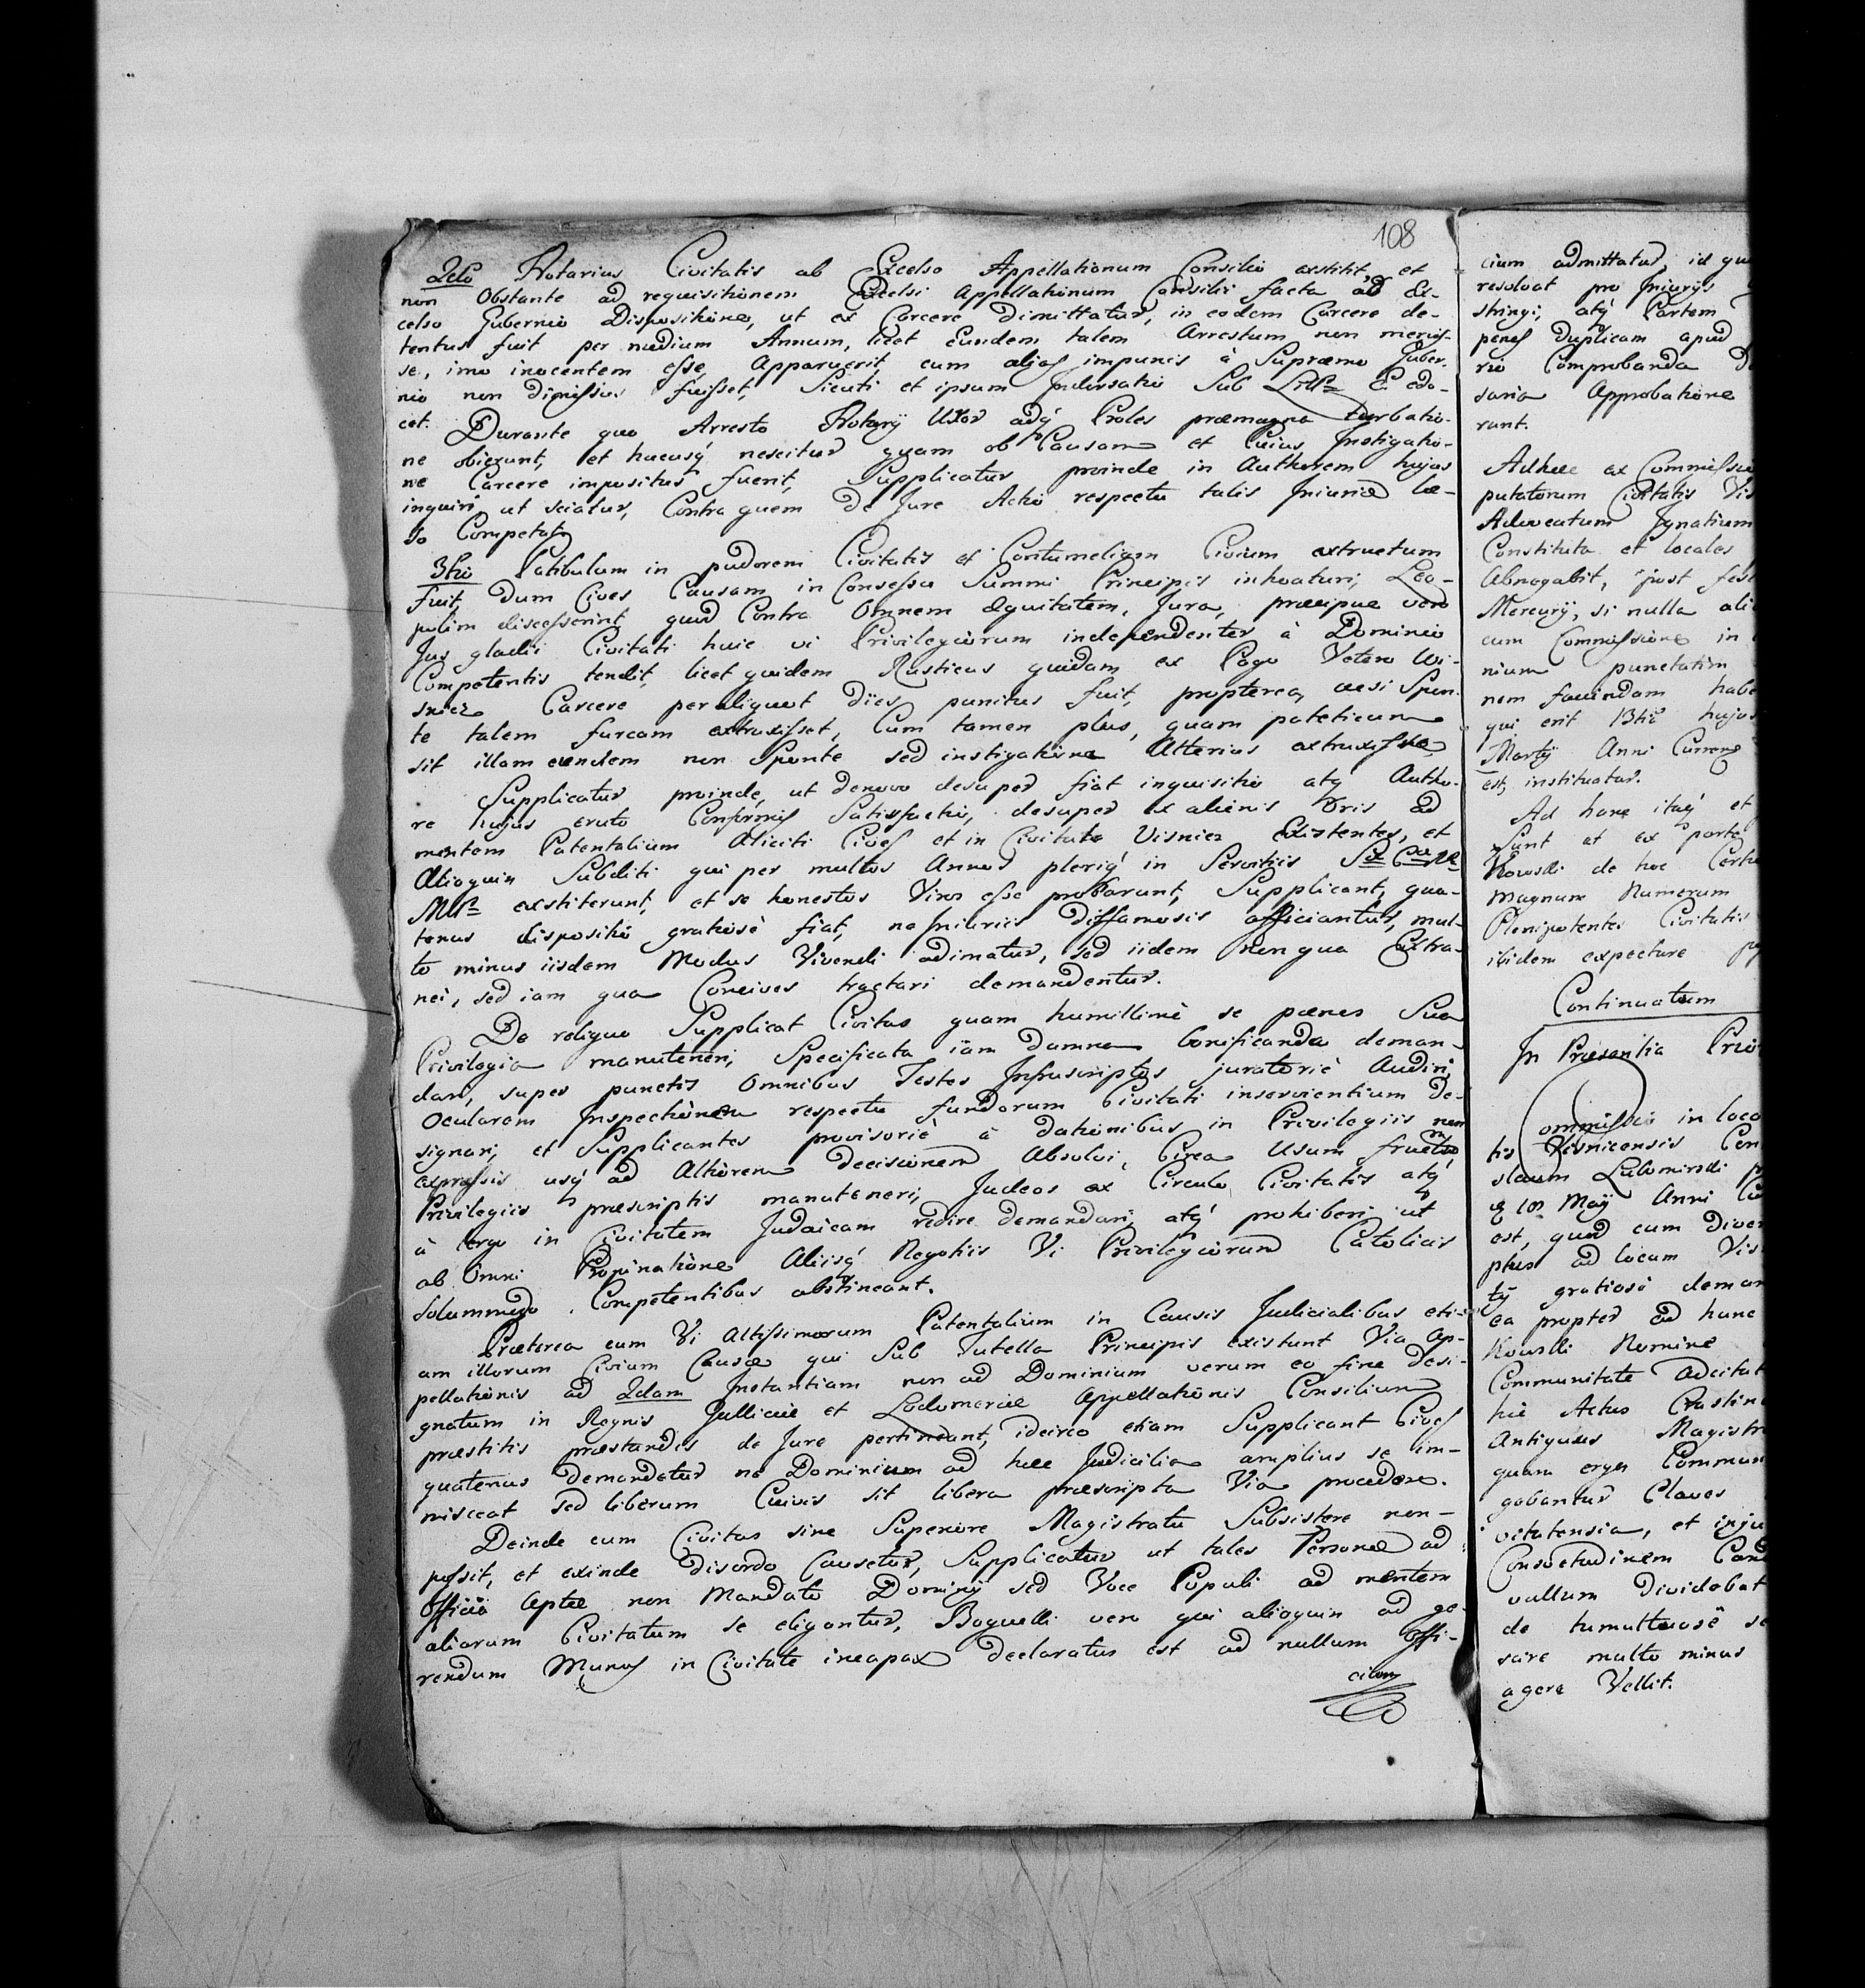 108
2do Notarius Civitatis ab Excelso Appellationum Consilio exstitit, et
non Obstante ad requisitionem Excelsi Appellationum Consilii facta ab Ex-
celso Gubernio Dispositione, ut ex Carcere dimittatur, in eodem Carcere de-
tentus fuit per medium Annum, licet Eundem talem Arrestum non meruis-
se, imo inocentem esse, Apparuerit, cum alias impunis à Supremo Guber-
nio non dimissus fuisset, Sicuti et ipsum Indorsatio Sub E edo-
cet.
Durante quo Arresto Notarij Uxor adq Proles præmagna turbatio-
ne obierunt, et hucusq nescitur quam ob Causam et Cuius Instigatio-
ne Carcere impositus fuerit, Supplicatur proinde in Authorem hujus
inquiri ut sciatur, Contra quem De Jure Actio respectu talis Injuriæ læ-
so Competat.
3tio Patibulum in pudorem Civitatis et Contumeliam Civium extructum
Fuit, dum Cives Causam in Consessu Summi Principis inhoaturi, Leo-
polim discesserint, quod Contra Omnem Equitatem, Jura, præcipue vero
Jus gladii Civitati huic vi Privilegiorum independenter à Dominio
Competentis tendit, licet quidem Rusticus quidam ex Pago Vetero Wi-
snicz Carcere per aliquot dies punitus fuit, propterea, acsi Spon-
te talem furcam extruxisset, Cum tamen plus, quam pateticum
sit illam eundem non Sponte sed instigatione Alterius extruxisse
Supplicatur proinde, ut denovo desuper fiat inquisitio atq Autho-
re hujus eruto Conformis Satisfactio, desuper ex alienis Oris ad
mentem Patentalium Aliciti Cives et in Civitate Visnicz Existentes, et
Alioquin Subditi qui per multos Annos pleriq in Servitiis
exstiterunt, et se honestos Viros esse probarunt, Supplicant, qua-
tenus dispositio gratiosè fiat, ne Injuriis diffamosis afficiantur, mul-
to minus iisdem Modus Vivendi adimatur, sed iidem non qua Extra-
nei, sed iam qua Concives tractari demandentur.
De reliquo Supplicat Civitas quam humillimè se penes Sua
Privilegia manuteneri, Specificata iam Damna bonificanda deman-
dari, super punctis Omnibus Testes Infrascriptos juratoriè Audiri,
Ocularem Inspectionem respectu fundorum Civitati inservientium De-
signari, et Supplicantes provisoriè à dationibus in Privilegiis non
expressis usq ad Altiorem decisionem Absolvi, Circa Usum fructum
Privilegiis præscriptis manuteneri, Judeos ex Circulo Civitatis atq
à tergo in Civitatem Judaicam redire demandari, atq prohiberi ut
ab Omni Propinatione Aliisq Negotiis Vi Privilegiorum Catolicis
Solummodo Competentibus abstineant.
Præterea cum Vi Altissimorum Patentalium in Causis Judicialibus eti-
am illorum Civium Causæ qui Sub Tutella Principis existunt Via Ap-
pellationis ad 2dam Instantiam non ad Dominium verum eo fine desi-
gnatum in Regnis Galliciæ et Lodomeriæ Appellationis Consilium
præstitis præstandis de Jure pertineant, idcirco etiam Supplicant Cives
quatenus demandetur ne Dominium ad hæc Judicialia amplius se im-
misceat sed liberum Cuivis sit libera præscripta Via procedere.
Deinde cum Civitas sine Superiore Magistratu Subsistere non-
possit, et exinde Disordo Causetur, Supplicatur ut tales Personæ ad
Officia Aptæ non Mandato Dominij sed Voce Populi ad mentem
aliarum Civitatum se eligantur, Boguelli vero qui alioquin ad ge-
rendum Munus in Civitate incapax declaratus est ad nullum Offi-
cium
cium admittatur, id
resolvat pro Injurijs
stringi, atq Partem
penes Duplicam apud
rio Comprobanda
saria Approbatione
rant.
Adhæc ex Commissio
putatorum Civitatis
Advocatum Ignatium
Constituta et locales
Abnegabit, post
Mercurij, si nulla
cum Commissione in
nium punctatim
nem favindam
qui erit 13tiæ
Martij Anni
est, instituatur.
Ad hanc itaq et
Sunt et ex parte
Kowski de hoc
Magnum Numerum
Plenipotentes Civitatis
ibidem expectare
Continuatum
In Præsentia
Commissio in loco
tis Visnicensis
slaum Lubomirski
Maij Anni
est, quod cum
ptus ad locum
tij gratiosè
ea propter ad hanc
Kowski Nomine
Communitate Adcitat
hic Actus
Antiquus
quam ergo
gabantur Claves
vitatensia, et
Consvetudinem
vallum Dividebat
de tumultuosè
sare multo minus
agere Vellit.